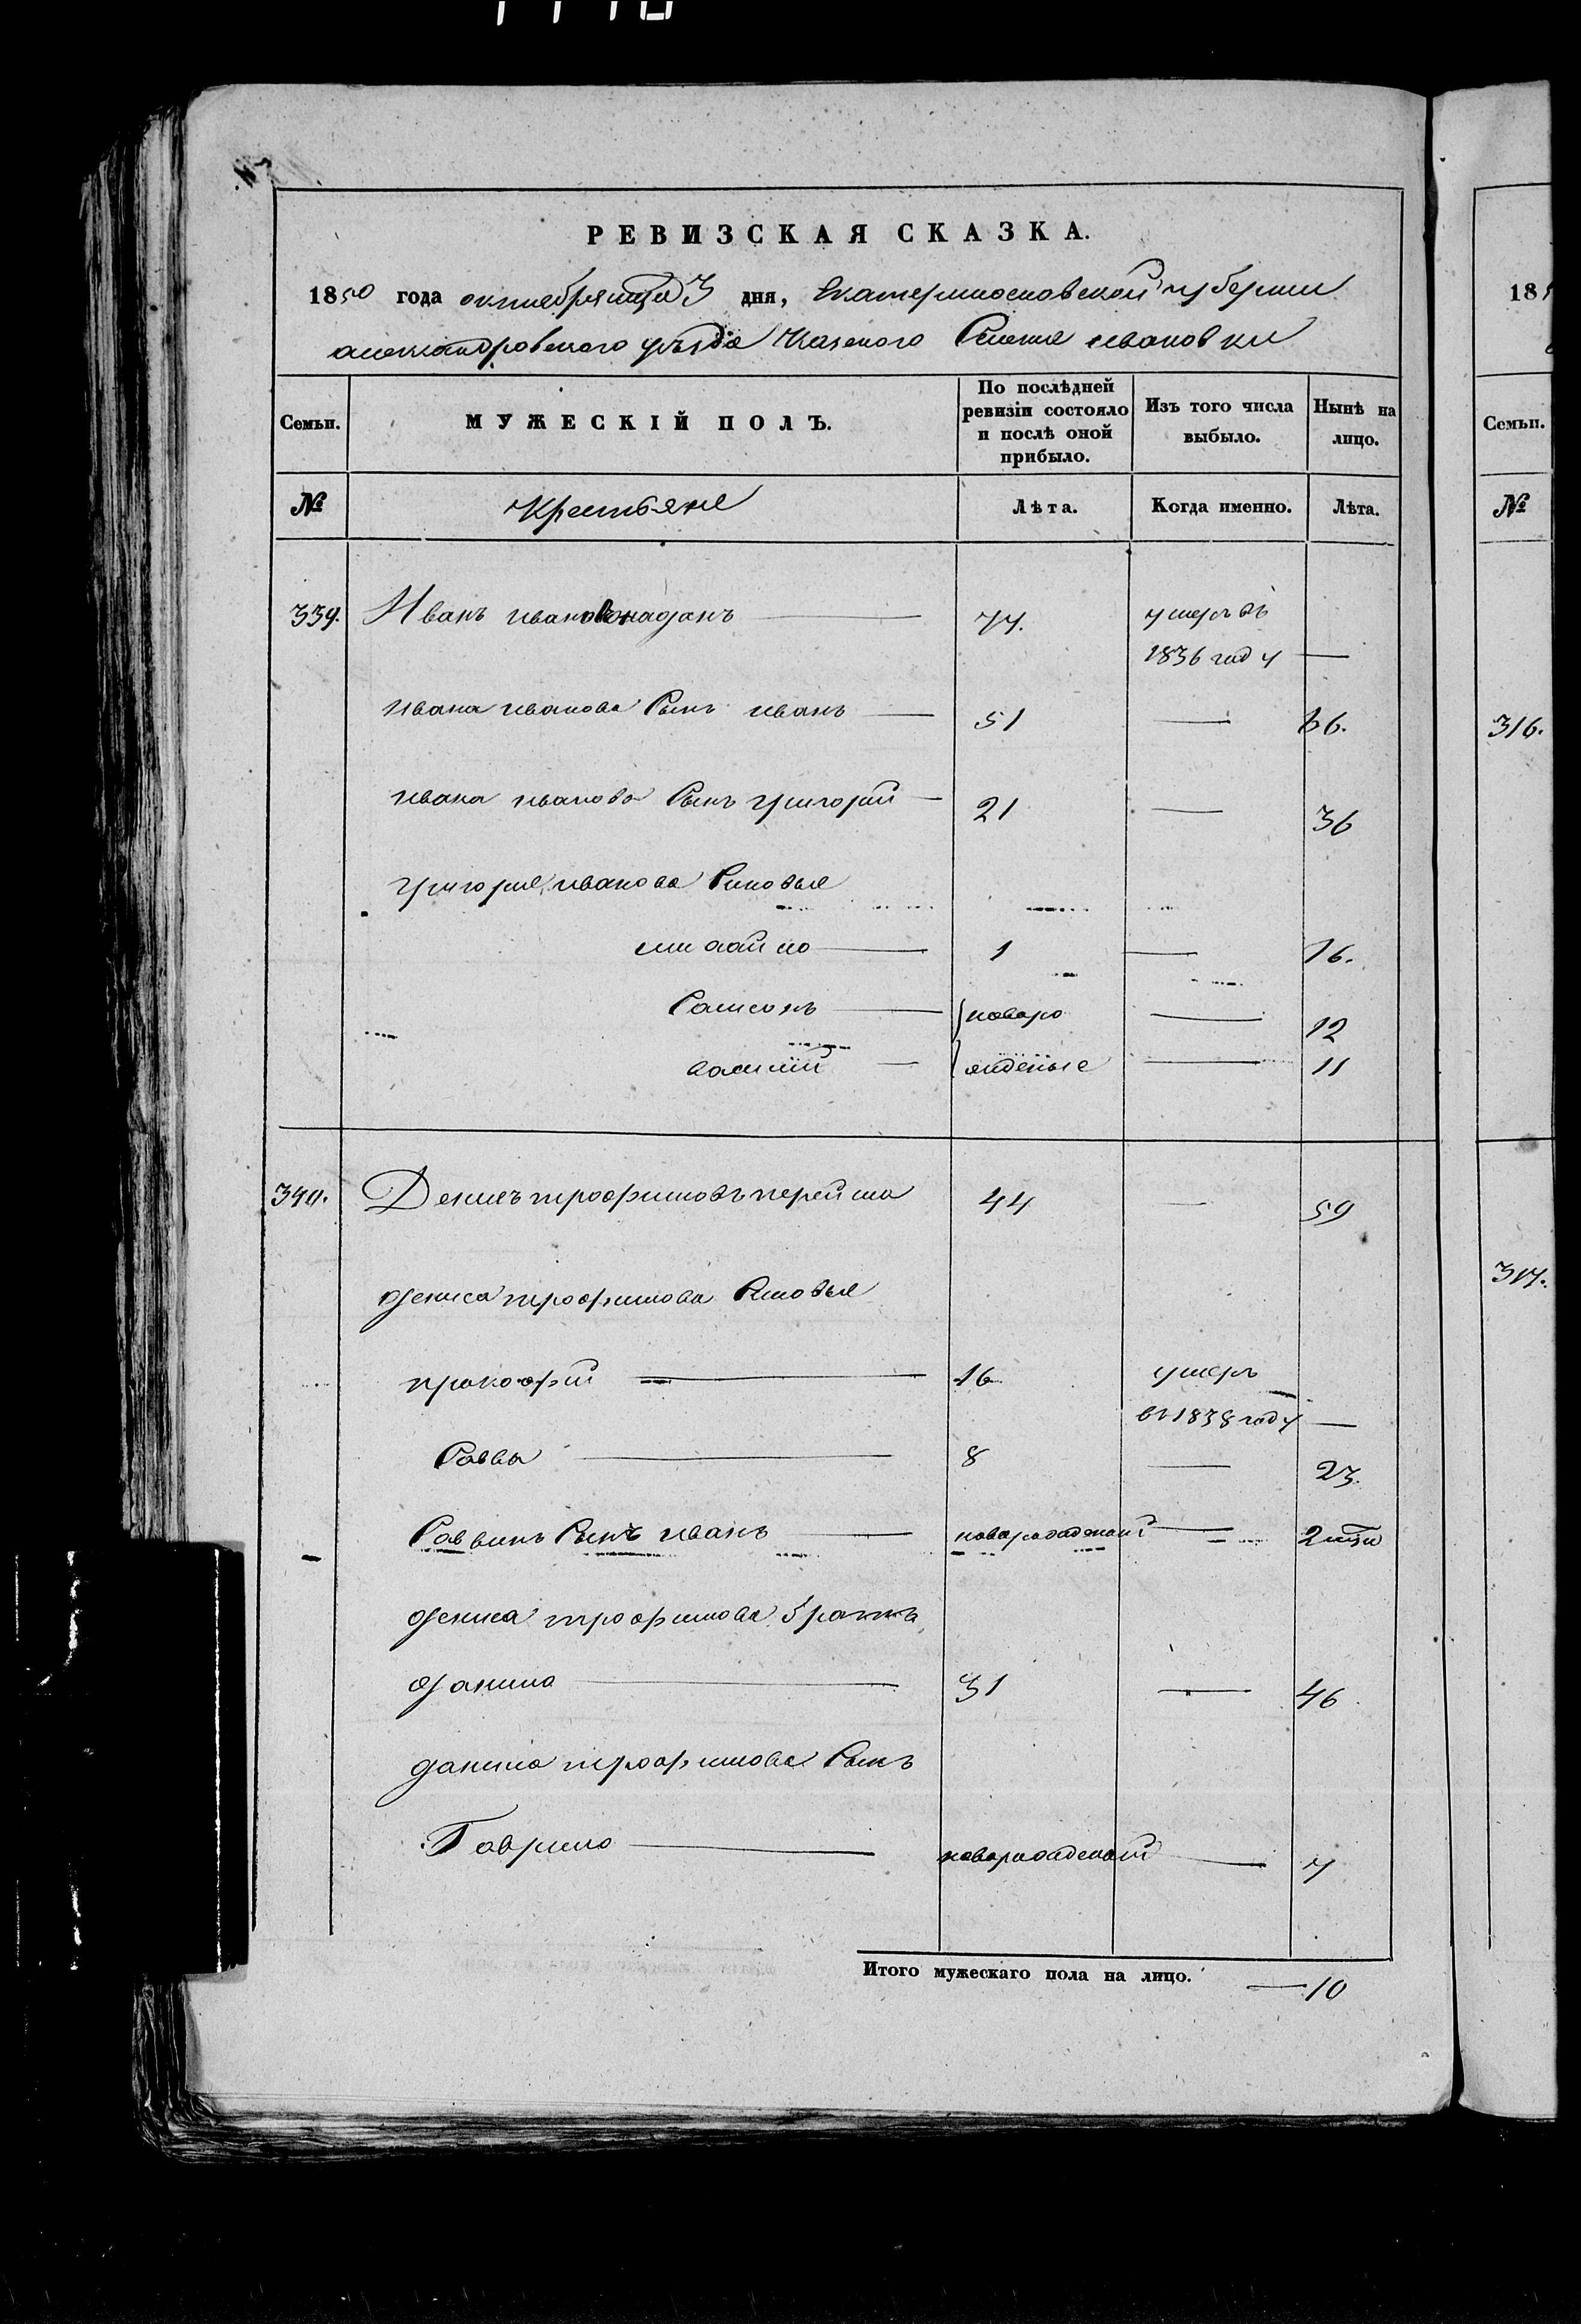 РЕВИЗСКАЯ СКАЗКА.
1850 года октября 3 дня, Екатеринославской губернии
александровскаго уезда Казеного Селения ивановки
185
Семьи.
МУЖЕСКІЙ ПОЛЪ.
По послѣдней ревизіи состояло и послѣ оной прибыло.
Изъ того числа выбыло.
Нынѣ на лицо.
Семьи.
№
Крестьяне
Лѣта.
Когда именно.
Лѣта.
№
339. Иванъ иванов 77. умеръ въ
1836 году —
ивана иванова Сынъ иванъ 51 — 66. 316.
ивана иванова Сынъ григорий 21 — 36
григория иванова Синовья
михайло 1 — 16.
Самсонъ новаро — 12
василий жденые — 11
340. Денисъ трофимовъ 44 — 59
дениса трофимова Синовья 317.
прокофий 16 умеръ
въ 1838 году —
Савва 8 — 23.
Саввинъ Сынъ иванъ новарожденый — 2
дениса трофимова братъ
данило 31 — 46
данила трофимова Сынъ
Гаврило новарожденый — 7
Итого мужескаго пола на лицо. — 10